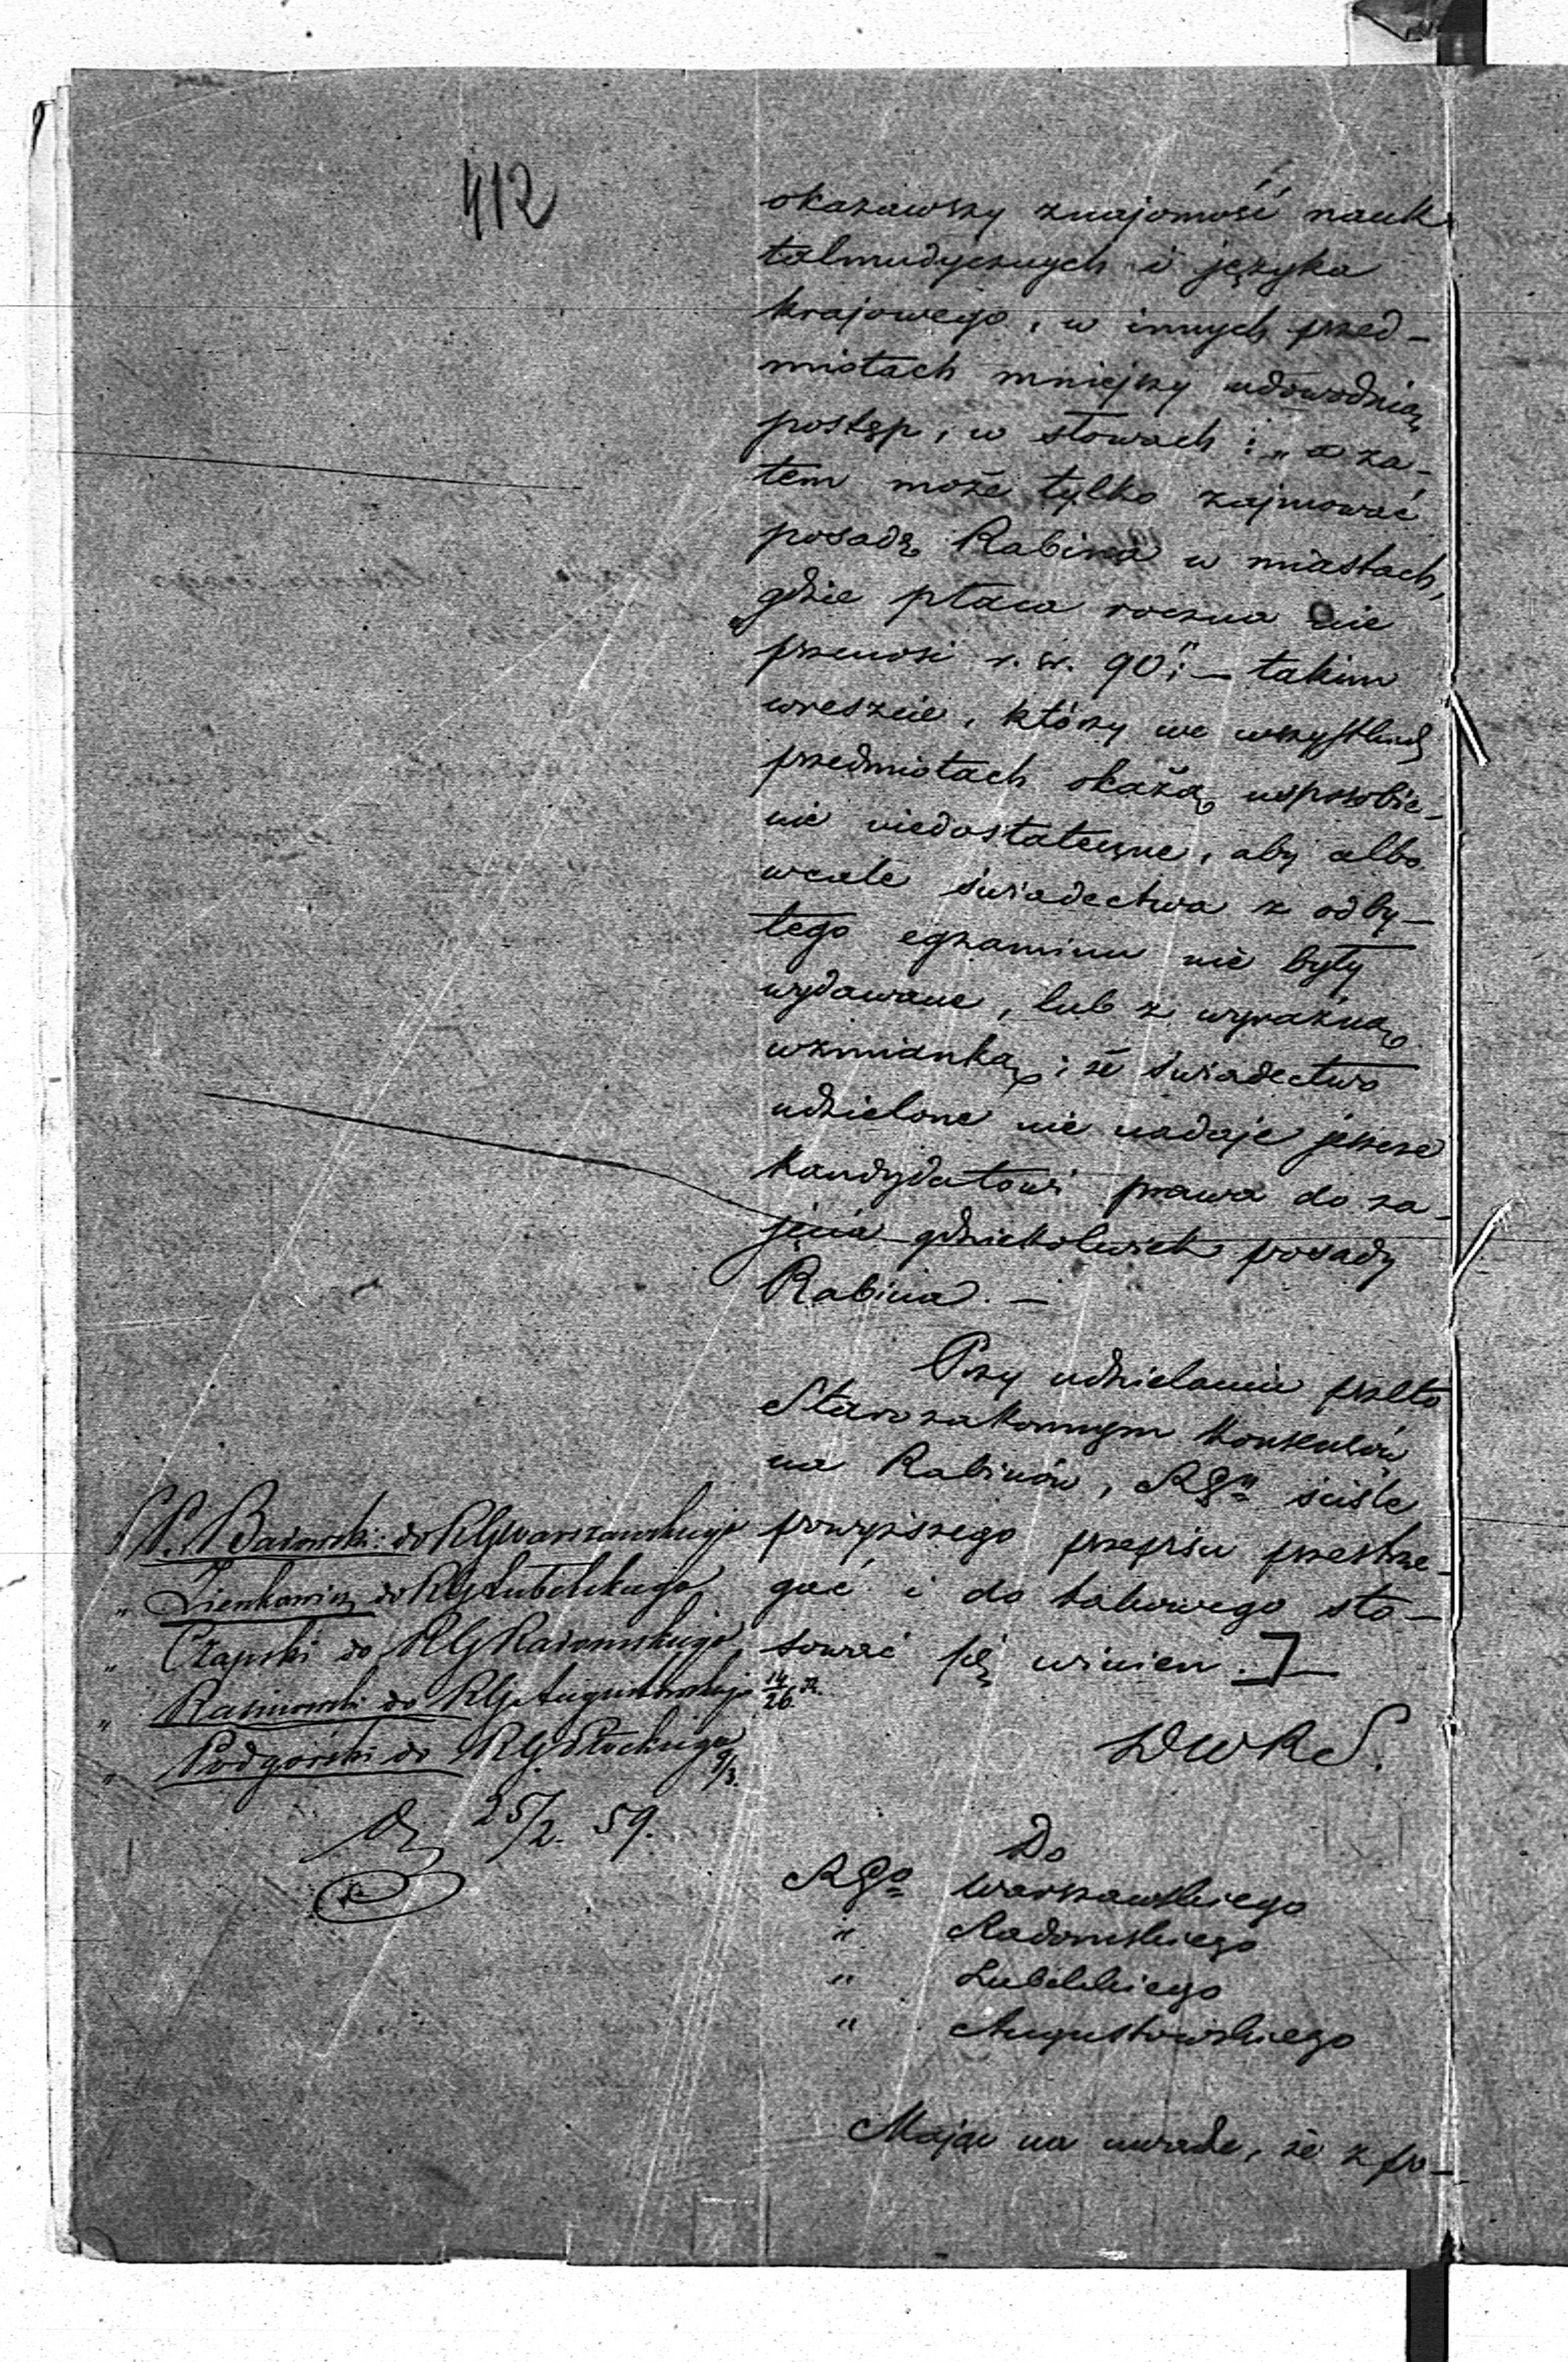 412
okazawszy znajomość nauk
talmudycznych i języka
krajowego, w innych przed-
miotach mniejszy udowodnią
postęp, w słowach: „a za-
tem może tylko zajmować
posadę Rabina w miastach,
gdzie płaca roczna nie
przenosi r. sr. 90"; – takim
wreszcie, którzy we wszystkich
przedmiotach okażą usposobie-
nie niedostateczne, aby albo
wcale świadectwa z odby-
tego egzaminu nie były
wydawane, lub z wyraźną
wzmianką; że świadectwo
udzielone nie nadaje jeszcze
kandydatowi prawa do za-
jęcia gdziekolwiek posady
Rabina. –
Przy udzielaniu przeto
Starozakonnym konsensów
na Rabinów, RG ściśle
powyższego przepisu przestrze-
gać i do takowego sto-
sować się winien.] –
DWRS.
Do
RGo Warszawskiego
" Radomskiego
" Lubelskiego
" Augustowskiego
Mając na uwadze, że z po-
P. Badowski: do RGWarszawskiego
" Zienkowicz do RGLubelskiego
" Czapski do RGRadomskiego
" Rasinowski do RGAugustowskiego 14/26
" Podgórski do RGPłockiego 9/3.
25/2. 59.